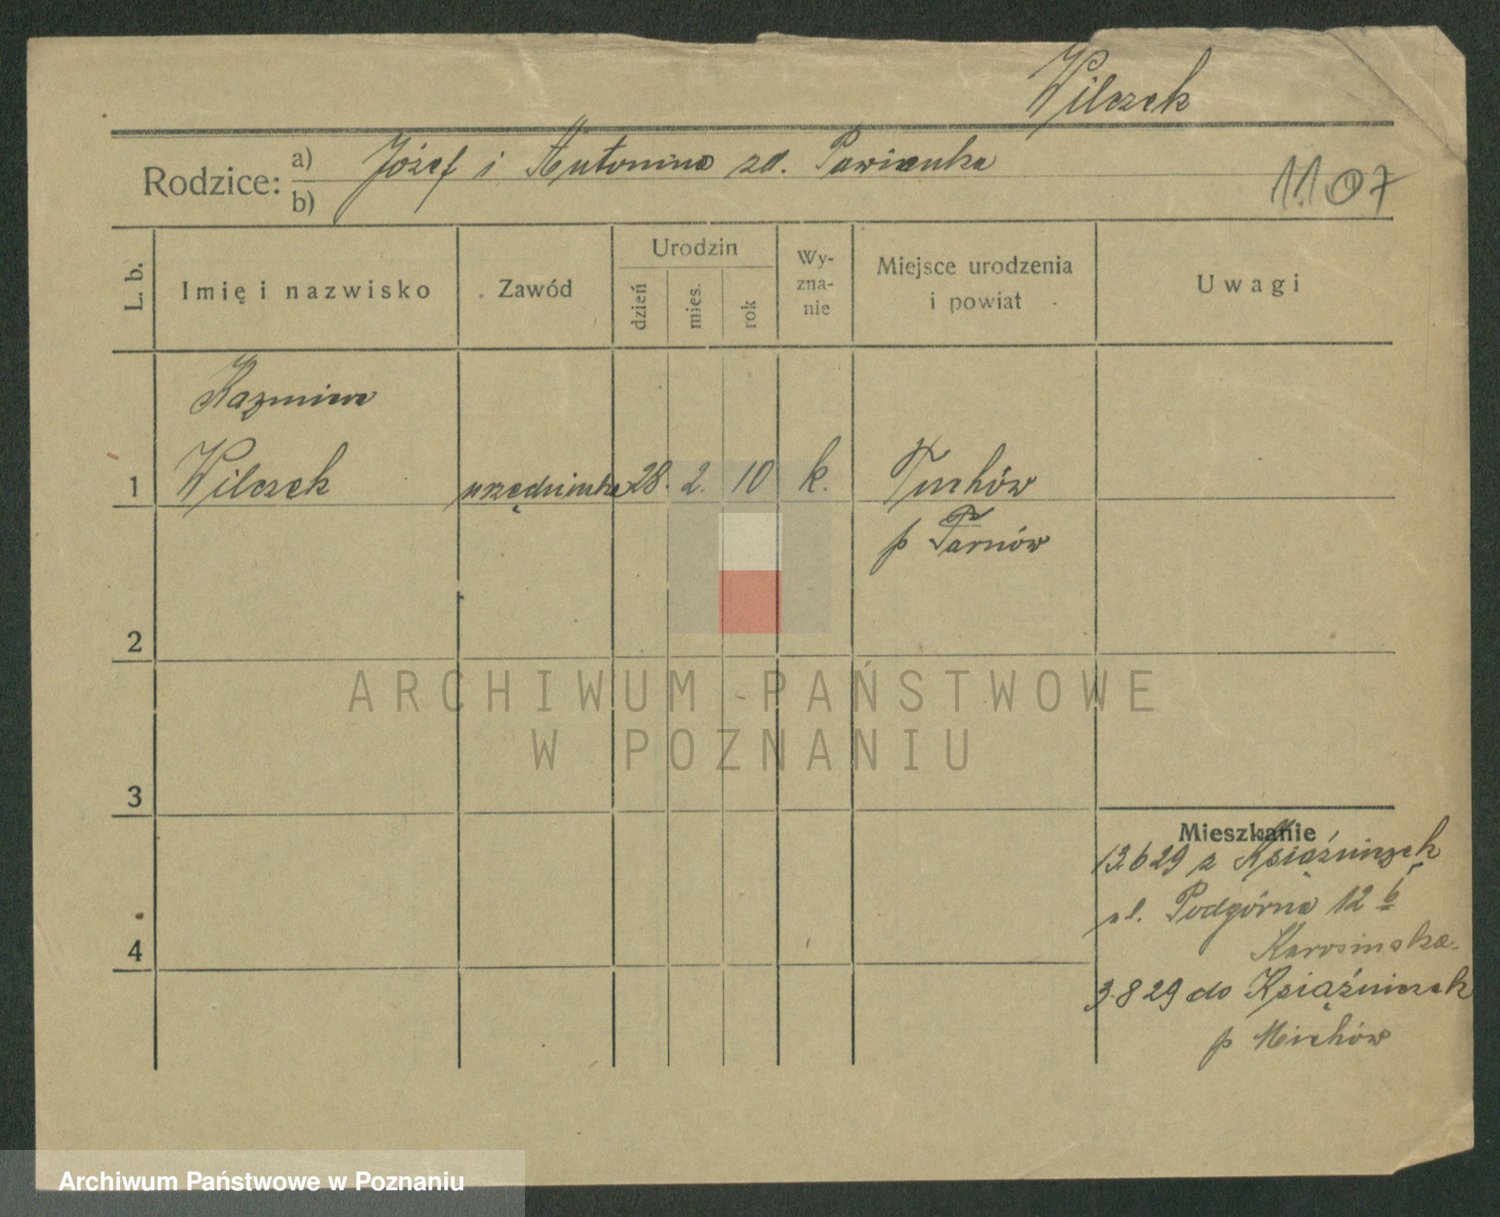 Wilczek
Rodzice: a) b) Józef i Antonina zd. Pawienka
11.07
L. b.
Imię i nazwisko
Zawód
Urodzin
dzień
mies.
rok
Wy-
zna-
nie
Miejsce urodzenia
i powiat
Uwagi
Kazmiera
1 Wilczek urzędniczka 28. 2. 10 k. Tuchów
p Tarnów
2
3
4
Mieszkanie
13.6 29 z Książniczek
ul. Podgórna 12 b
Karosinska
3.8 29 do Książniczek
p Miechów
ARCHIWUM PAŃSTWOWE
W POZNANIU
Archiwum Państwowe w Poznaniu